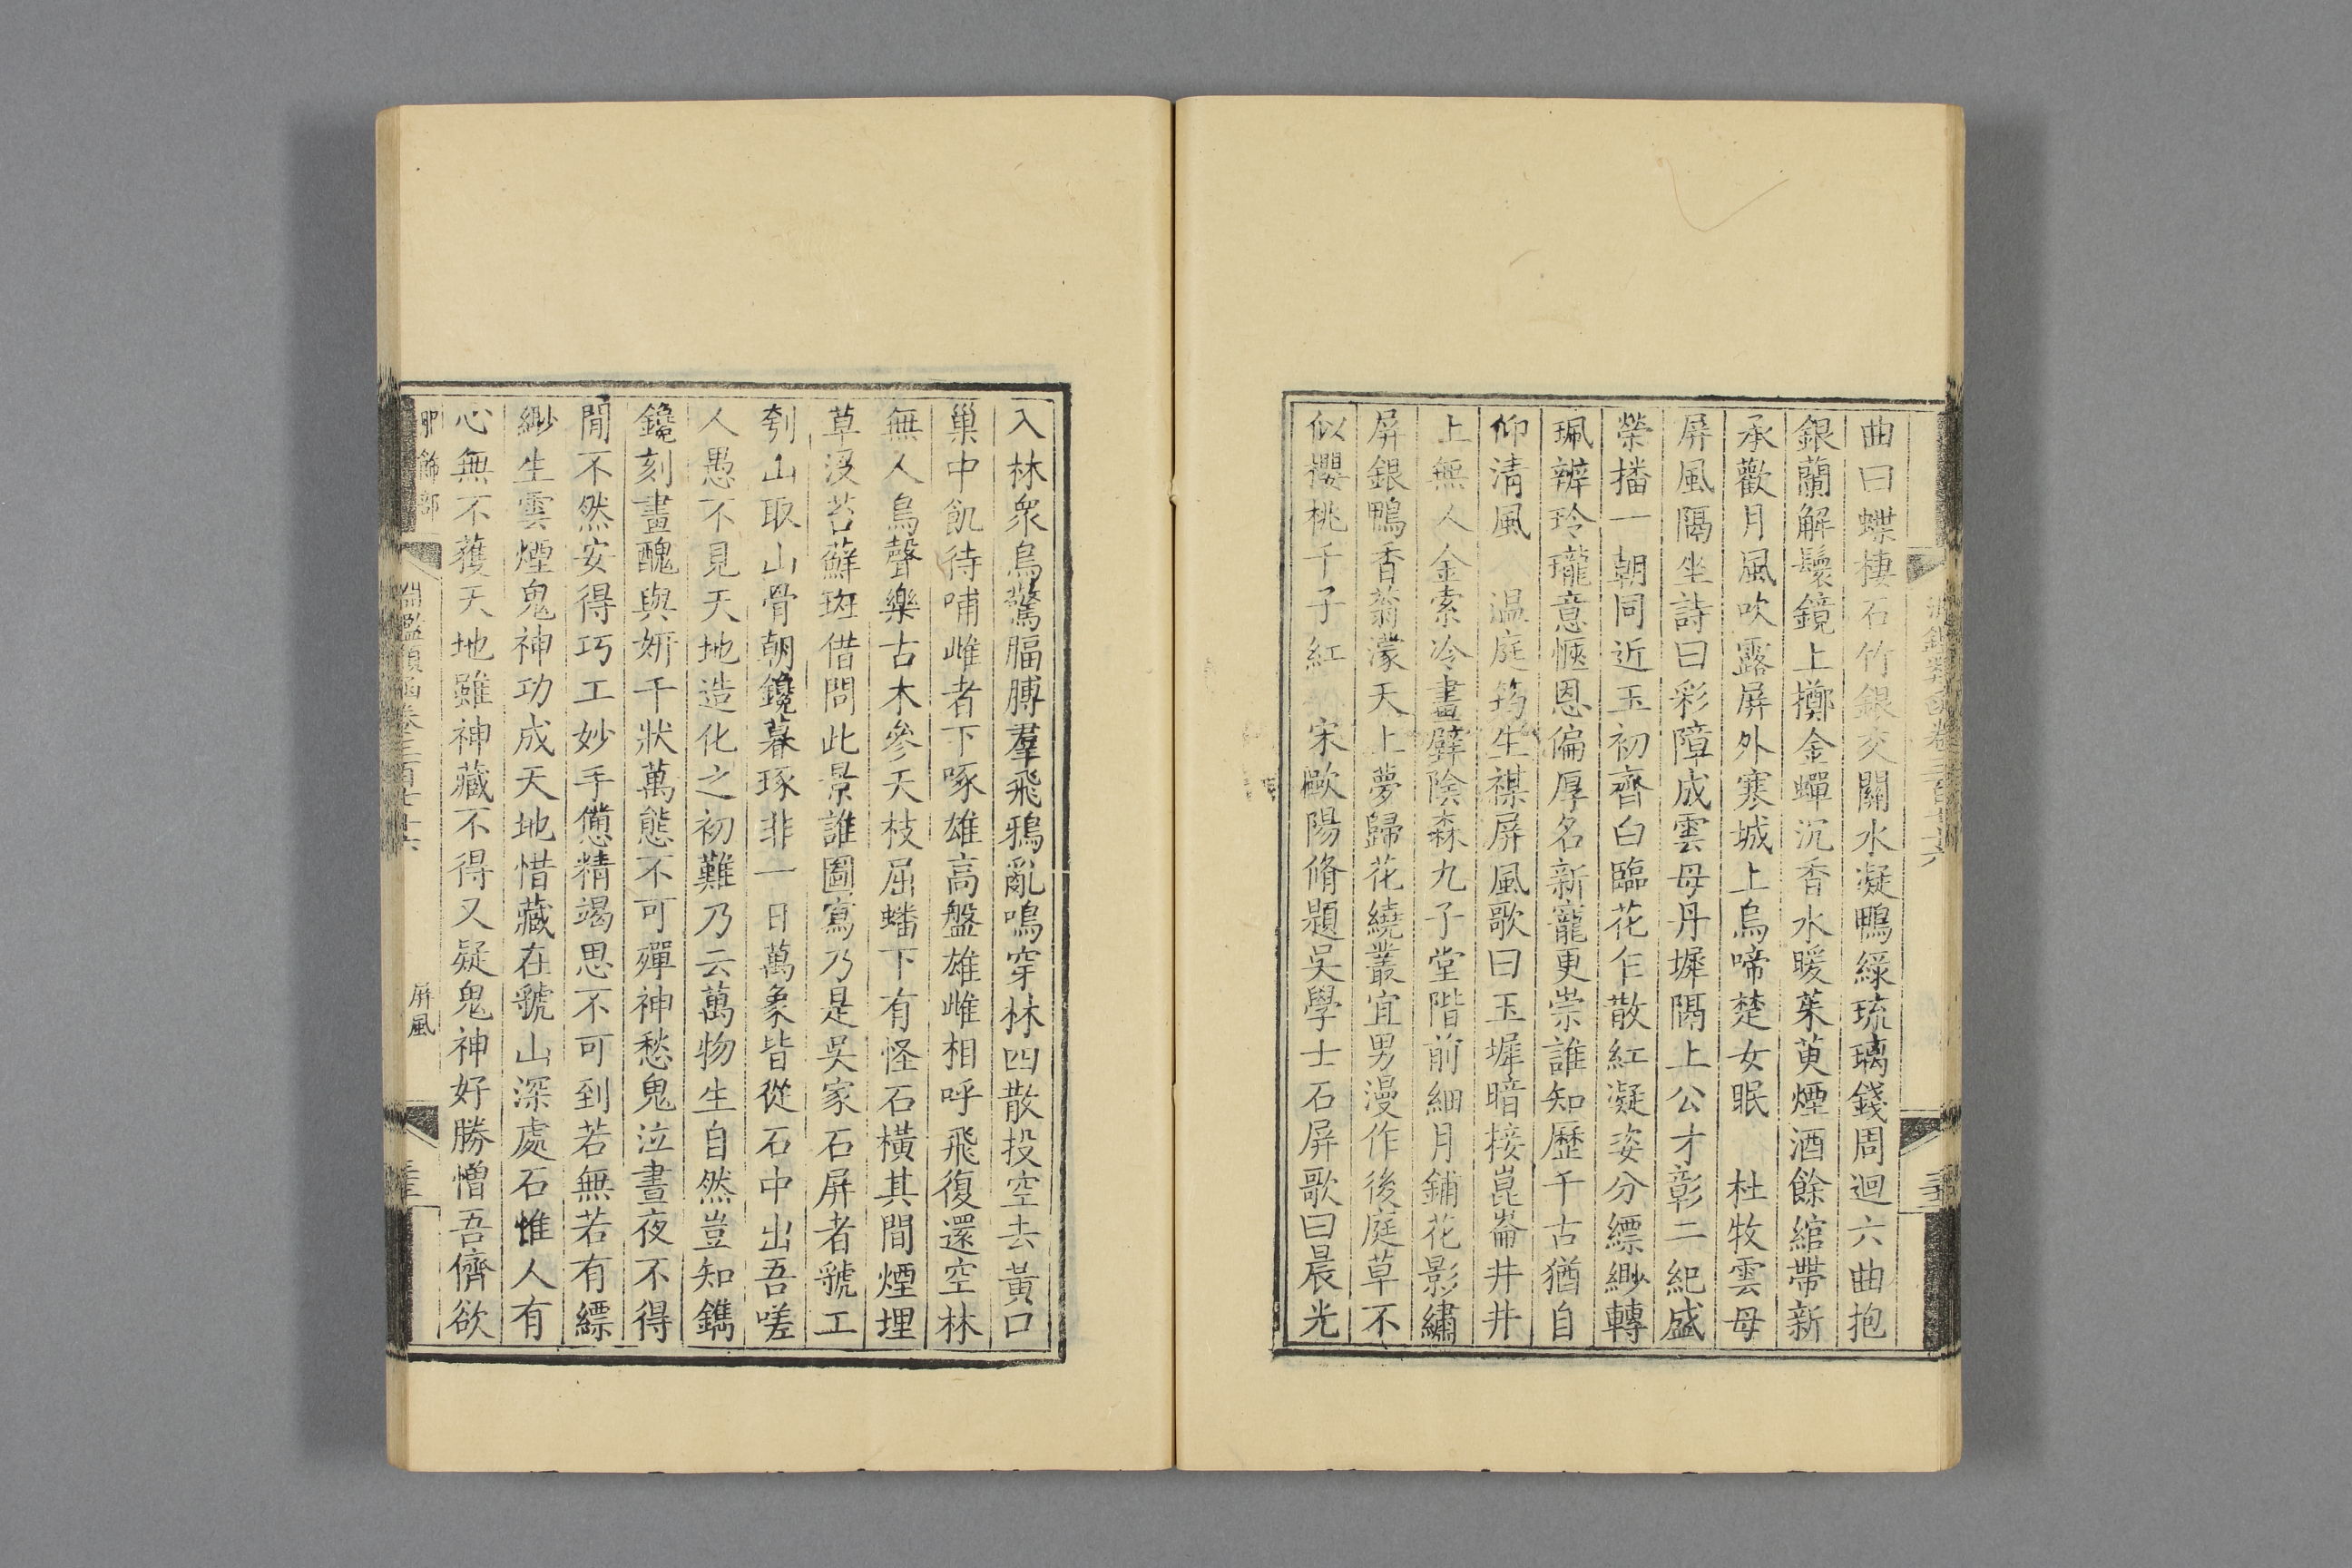 曲曰蝶棲石竹銀交關水凝鴨綠琉璃錢周迴六曲抱
銀蘭解鬟鏡上擲金蟬沉香水暖茱萸煙酒餘綰帶新
承歡月風吹露屏外寒城上烏啼楚女眠 杜牧雲母
屏風隔坐詩曰彩障成雲母丹墀隔上公才彰二紀盛
榮播一朝同近玉初齊白臨花乍散紅凝姿分縹緲轉
珮辨玲瓏意愜恩偏厚名新寵更崇誰知歷千古猶自
仰清風 温庭筠生禖屏風歌曰玉墀暗接崑崙井井
上無人金索冷畫壁陰森九子堂階前細月鋪花影繡
屏銀鴨香蓊濛天上夢歸花繞叢宜男漫作後庭草不
似櫻桃千子紅 宋歐陽脩題吳學士石屏歌曰晨光
入林衆鳥驚腷膊羣飛鴉亂鳴穿林四散投空去黃口
巢中飢待哺雌者下啄雄高盤雄雌相呼飛復還空林
無人鳥聲樂古木參天枝屈蟠下有怪石橫其間煙埋
草沒苔蘚斑借問此景誰圖寫乃是吳家石屏者虢工
刳山取山骨朝鑱暮琢非一日萬象皆從石中出吾嗟
人愚不見天地造化之初難乃云萬物生自然豈知鐫
鑱刻畫醜與妍千狀萬態不可殫神愁鬼泣晝夜不得
閒不然安得巧工妙手憊精竭思不可到若無若有縹
緲生雲煙鬼神功成天地惜藏在虢山深處石惟人有
心無不獲天地雖神藏不得又疑鬼神好勝憎吾儕欲
服飾部 淵鑑類函卷三百七十六 屏風